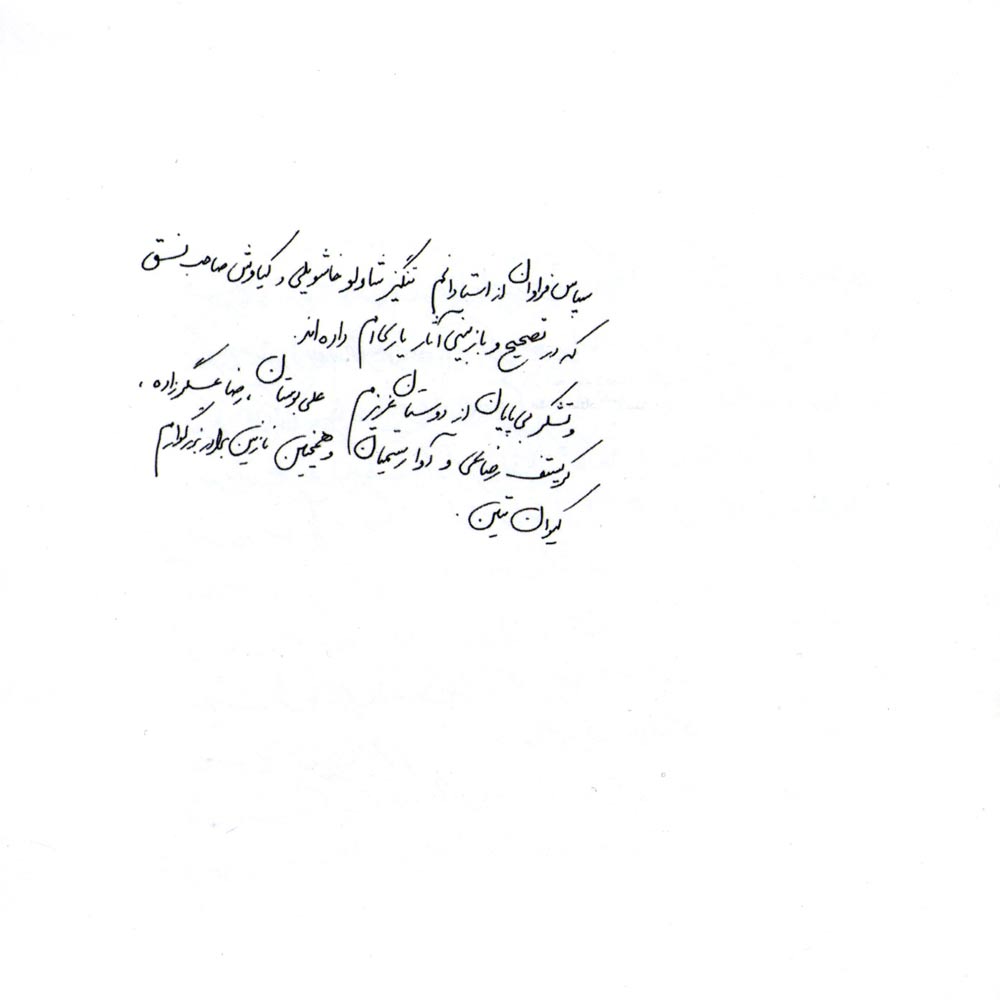 سپاس فراوان از استادانم تنگیز شاولوخاشویلی و کیاوش صاحب نسق
که در تصحیح و بازبینی آثار یاری‌ام داده‌اند.
و تشکر بی‌پایان از دوستان عزیزم علی بوستان، رضا عسگرزاده،
کریستف رضاعی و آوا رستمیان و همچنین نازنین برادر بزرگوارم
کیوان متین.